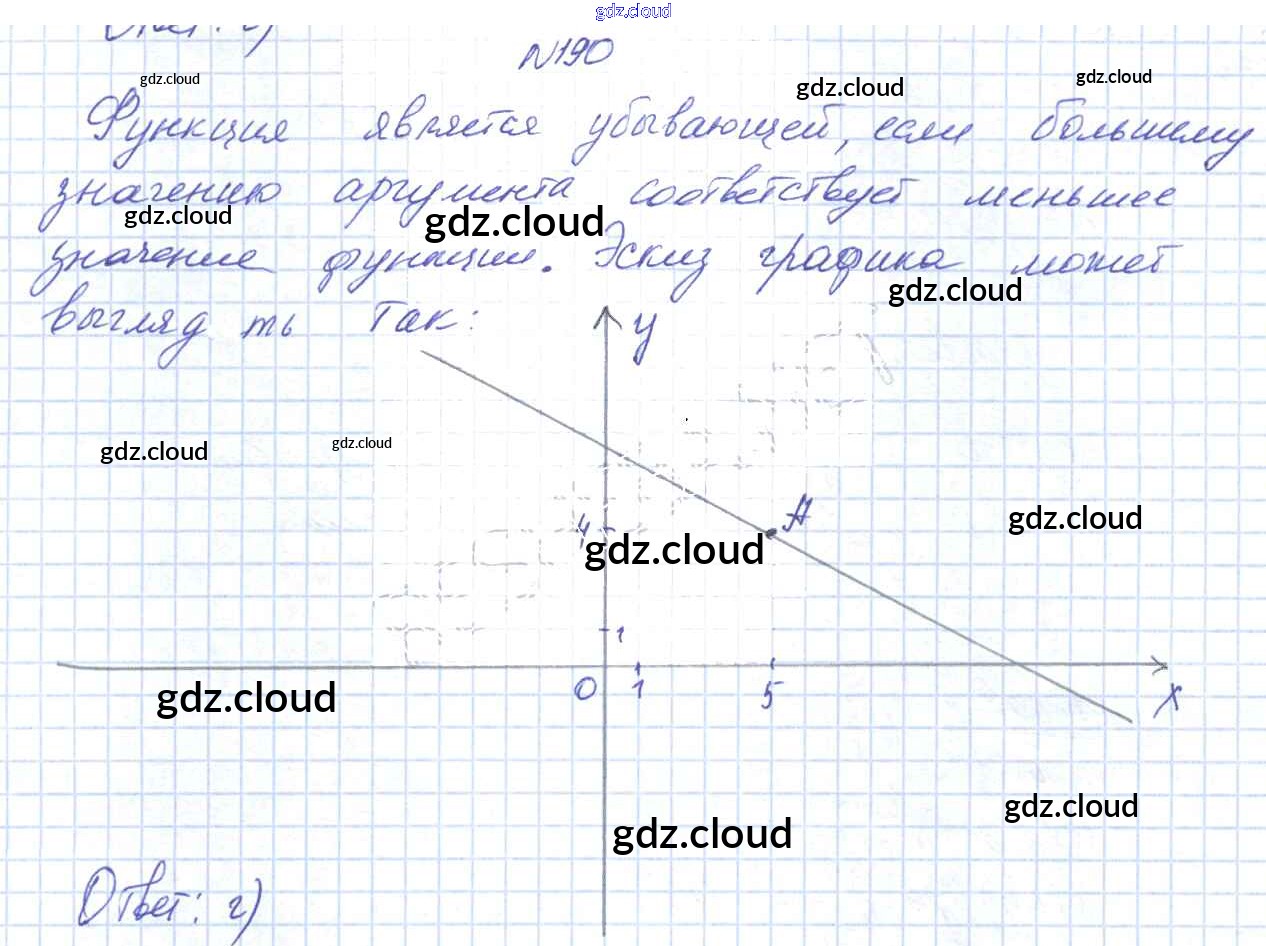 gdz.cloud
Ответ: г)
N190
gdz.cloud gdz.cloud gdz.cloud
Функция является убывающей, если большему
значению аргумента соответствует меньшее
gdz.cloud gdz.cloud
значение функции. Эскиз графика может
gdz.cloud
выгляд ть так:
y
gdz.cloud gdz.cloud
A
gdz.cloud
4
gdz.cloud
1
0 1 5 x
gdz.cloud
gdz.cloud
gdz.cloud
Ответ: г)